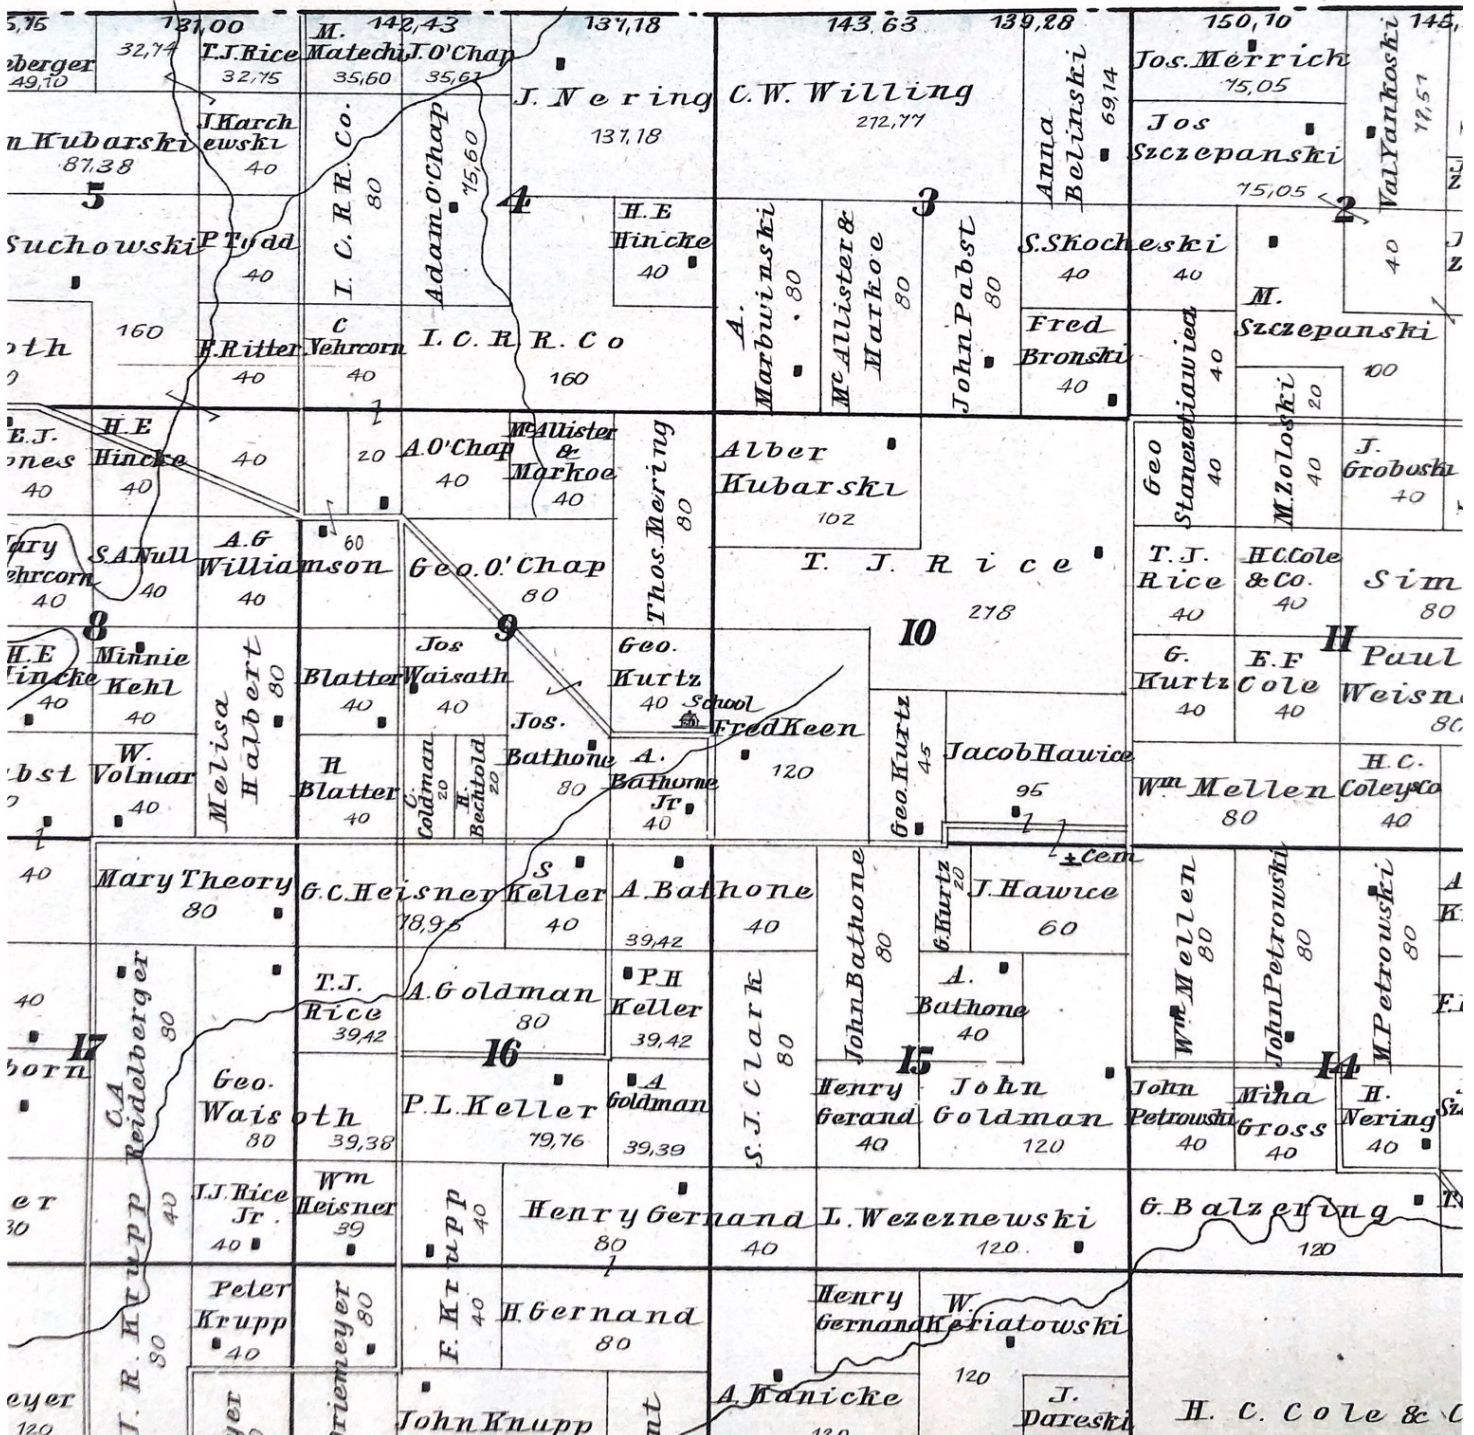 131,00
142,43
137,18
143,63
139,28
150,70
eberger
49,70
32,74
T.J.Rice
32,75
M.
Matechi
35,60
J.O'Chap
35,61
J. Nering
137,18
C.W. Willing
212,77
Anna
Belinski
69,14
Jos. Merrick
75,05
Val Yankoski
77,51
n Kubarski
87,38
J.Karch
ewski
40
I.C.R.R.Co.
80
Adam O'Chap
75,60
Jos
Szczepanski
75,05
5
4
3
2
Suchowski
160
P Tydd
40
H.E
Hincke
40
A.
Marbwinski
80
McAllister &
Markoe
80
John Pabst
80
S.Skocheski
40
40
40
M.
Szczepanski
100
oth
F.Ritter
40
C
Vehrcorn
40
I. C. R. R. Co
160
Fred
Bronski
40
Geo
Stanzetiawicz
40
40
M.Zoloski
20
40
E.J.
ones
40
H.E
Hincke
40
40
20
A.O'Chap
40
McAllister
&
Markoe
40
Thos.Mering
80
Alber
Kubarski
102
J.
Groboski
40
ary
ehrcorn
40
S.A.Null
40
A.G
Williamson
40
60
Geo.O'Chap
80
T. J. Rice
278
T.J.
Rice
40
H.C.Cole
& Co.
40
Sim
80
8
9
10
11
H.E
Hincke
40
Minnie
Kehl
40
Melisa
Halbert
80
Blatter
40
Jos
Waisath
40
Geo.
Kurtz
40
School
Fred Keen
120
Geo.Kurtz
45
Jacob Hawice
95
G.
Kurtz
40
E.F
Cole
40
Paul
Weisn
80
bst
W.
Volmar
40
H
Blatter
40
C.
Goldman
20
H.
Bechtold
20
Jos.
Bathone
80
A.
Bathorne
Jr
40
Wm Mellen
80
H.C.
Cole&Co
40
Cem
40
Mary Theory
80
G.C.Heisner
78,95
S
Keller
40
A.Bathone
39,42
40
John Bathone
80
G.Kurtz
20
J.Hawice
60
Wm Mellen
80
John Petrowski
80
M.Petrowski
80
40
C.A
Reidelberger
80
T.J.
Rice
39,42
A.Goldman
80
P.H
Keller
39,42
S.J.Clark
80
A.
Bathone
40
17
16
15
14
born
Geo.
Waisoth
80
39,38
P.L.Keller
79,76
A
Goldman
39,39
Henry
Gerand
40
John
Goldman
120
John
Petrowski
40
Mina
Gross
40
H.
Nering
40
er
80
J.R.Krupp
40
80
J.J.Rice
Jr
40
Wm
Heisner
39
F. Krupp
40
40
Henry Gernand
80
40
L.Wezeznewski
120
G.Balzering
120
Peter
Krupp
40
Driemeyer
80
H.Gernand
80
Henry
Gernand
W.
Keriatowski
120
eyer
120
yer
John Knupp
nt
A.Hanicke
120
J.
Dareski
H. C. Cole & C